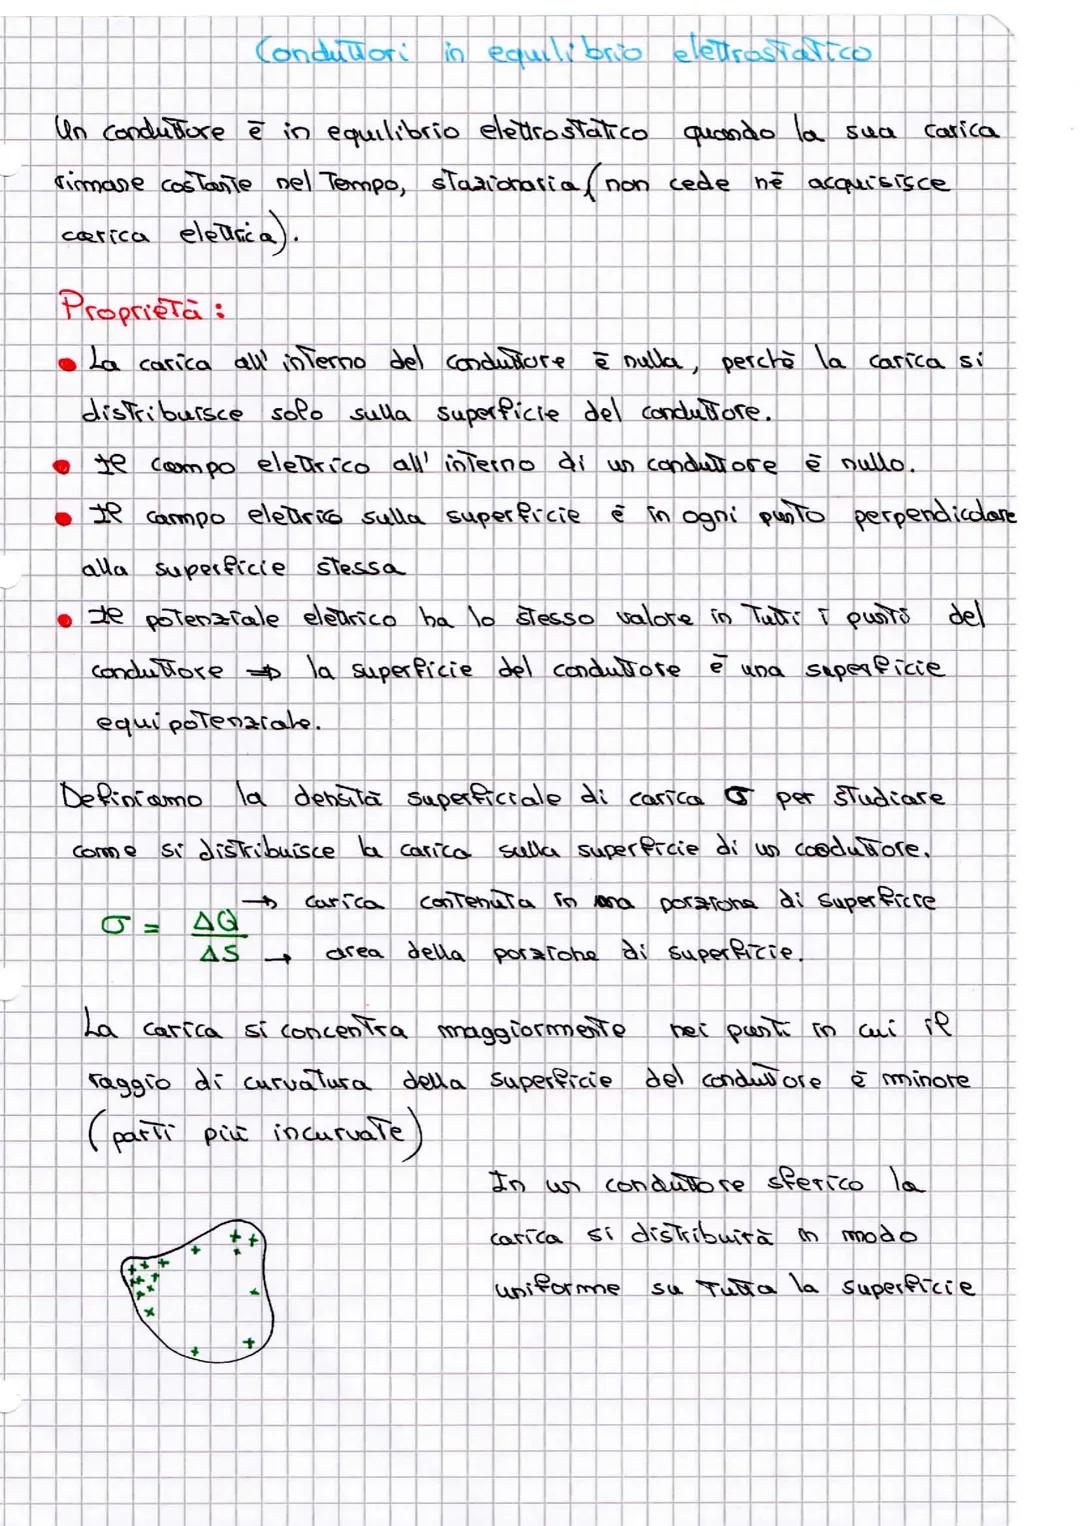 Conduttori in equilibrio elettrostatico
Un conduttore è in equilibrio elettrostatico quando la sua carica
rimane costante nel tempo, stazionaria (non cede nè acquisisce
carica elettrica).
Proprietà:
• La carica all'interno del conduttore è nulla, perchè la carica si
distribuisce solo sulla superficie del conduttore.
• Il campo elettrico all'interno di un conduttore è nullo.
• Il campo elettrico sulla superficie è in ogni punto perpendicolare
alla superficie stessa
• Il potenziale elettrico ha lo stesso valore in tutti i punti del
conduttore ⇒ la superficie del conduttore è una superficie
equipotenziale.
Definiamo la densità superficiale di carica σ per studiare
come si distribuisce la carica sulla superficie di un conduttore.
σ = ΔQ → carica contenuta in una porzione di superficie
ΔS → area della porzione di superficie.
La carica si concentra maggiormente nei punti in cui il
raggio di curvatura della superficie del conduttore è minore
(parti più incurvate)
In un conduttore sferico la
carica si distribuirà in modo
uniforme su tutta la superficie